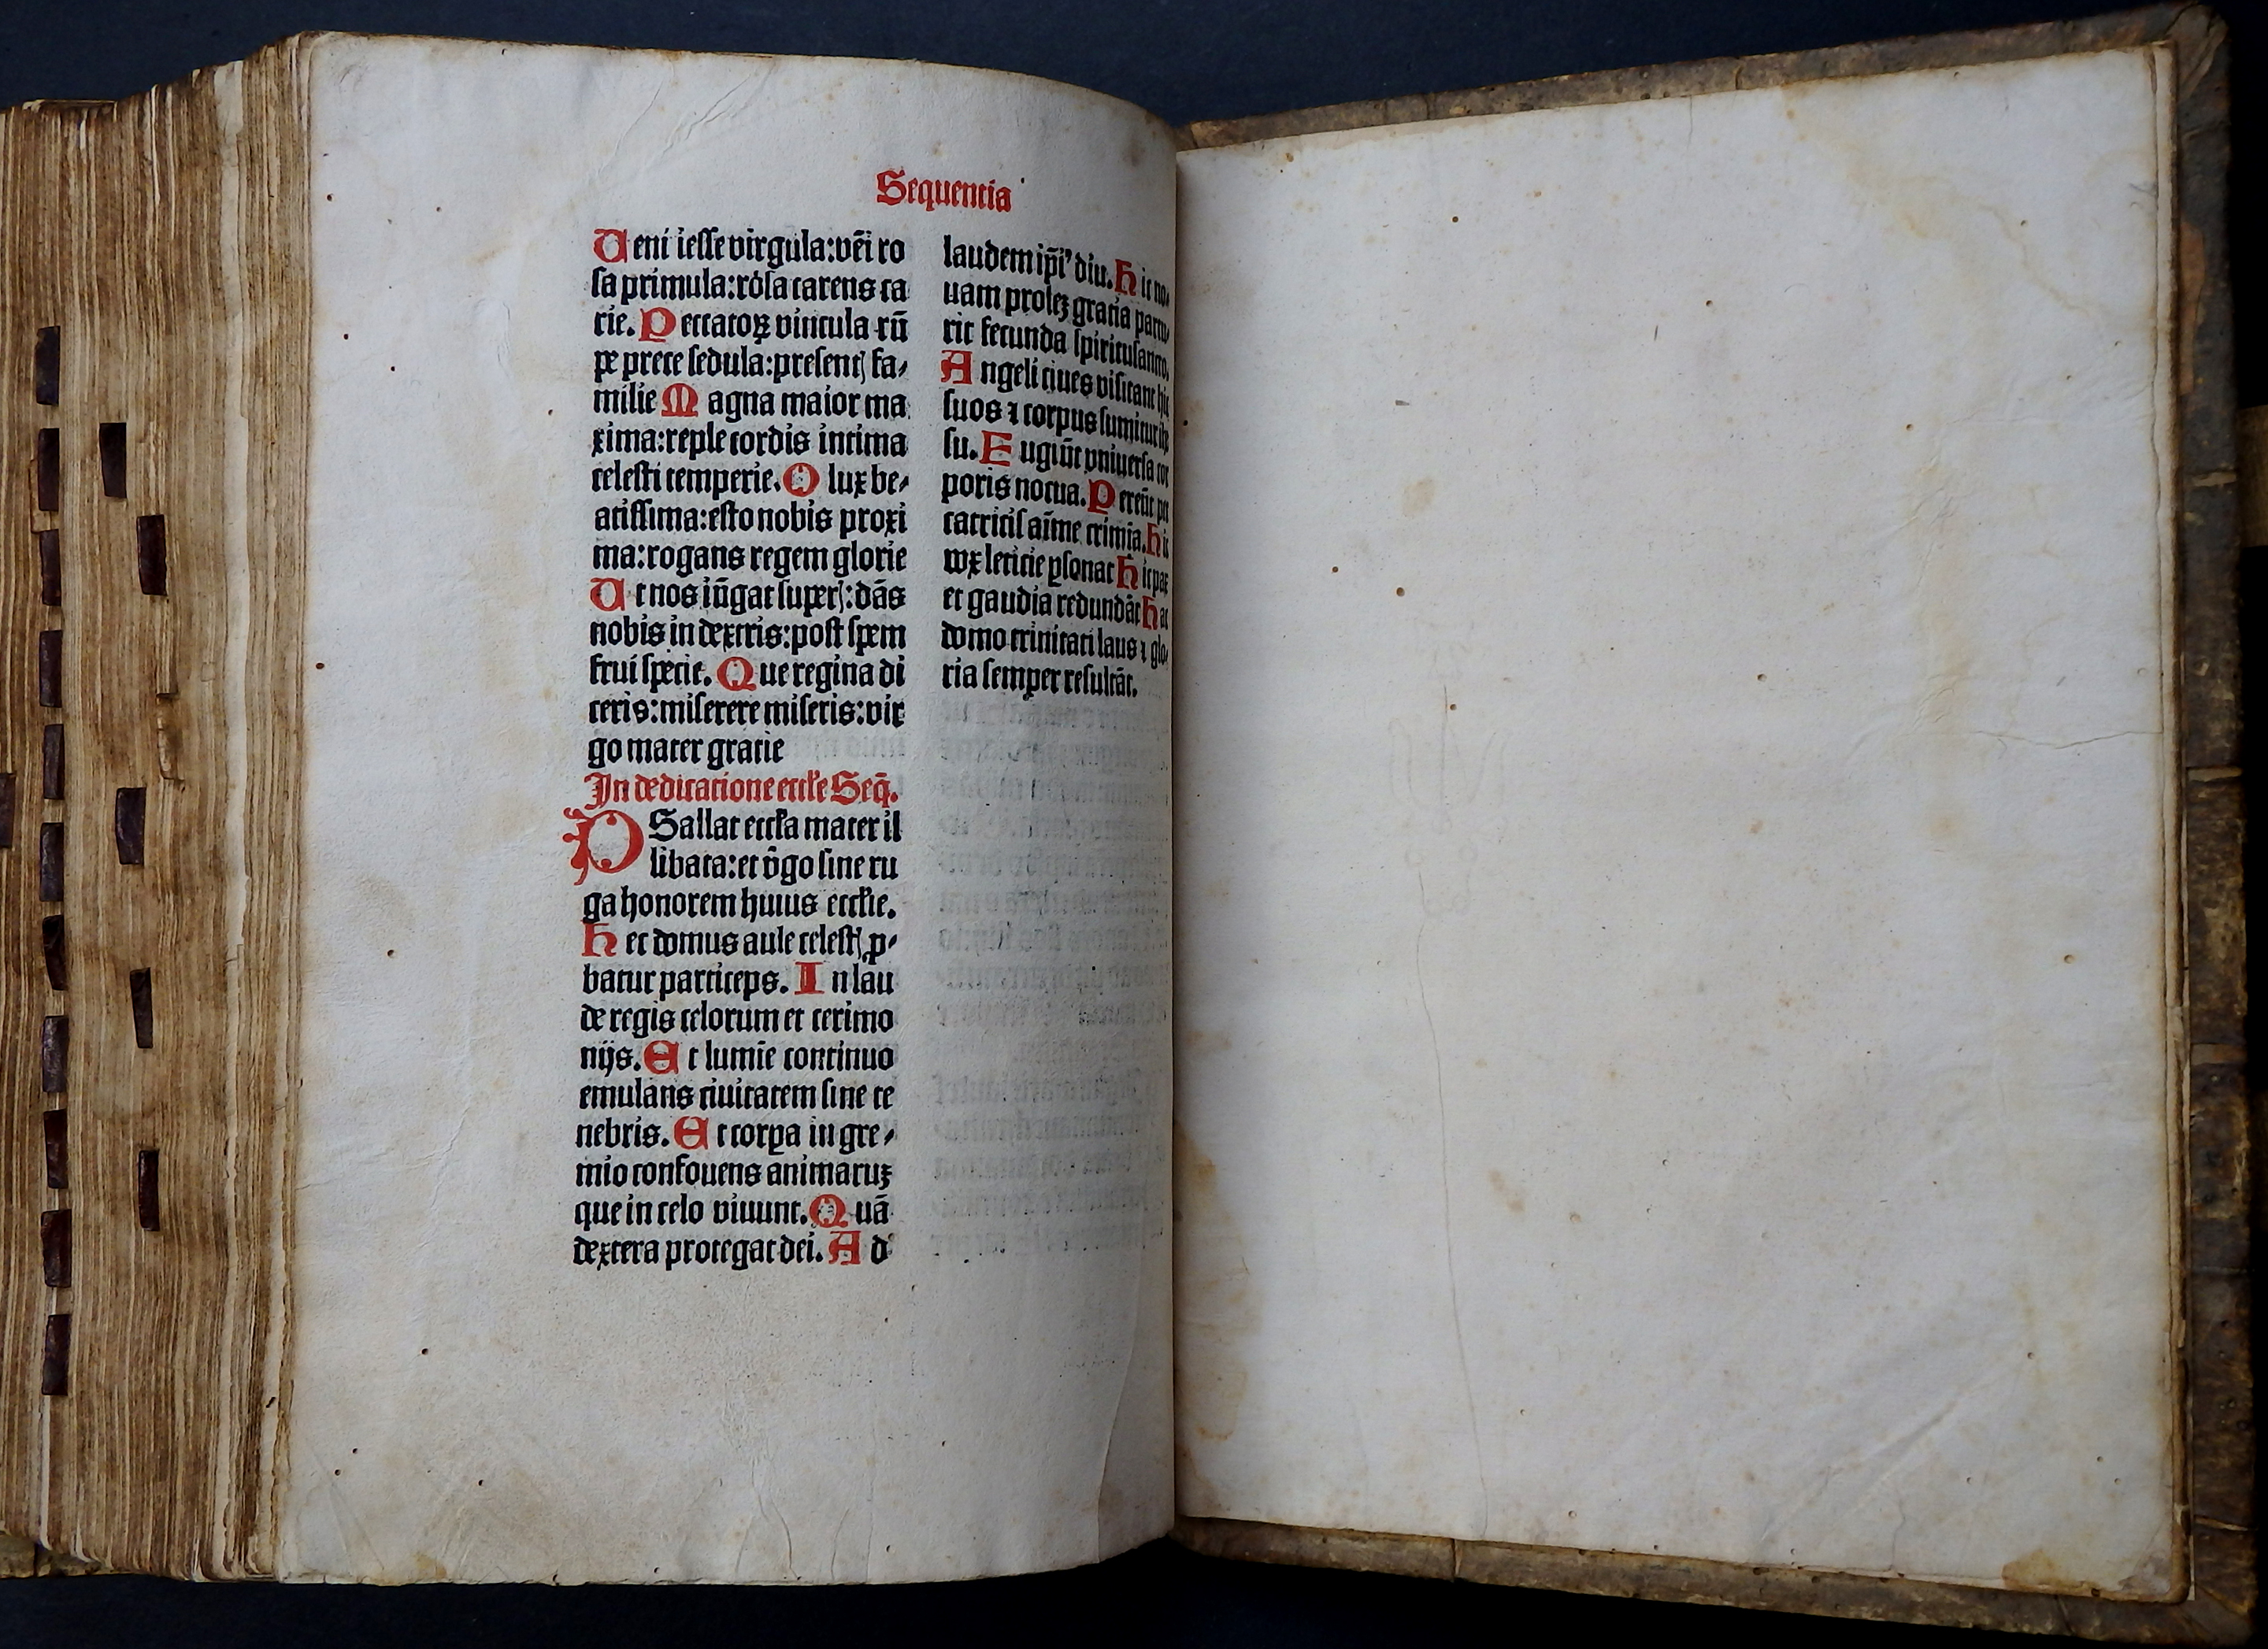 Sequentia
Veni iesse virgula:vēi ro
sa primula:rosa carens ca
rie. Peccatoꝝ vincula rū
pe prece sedula:presentꝭ fa⸗
milie Magna maior ma
xima:reple cordis intima
celesti temperie. O lux be⸗
atissima:esto nobis proxi
ma:rogans regem glorie
Ut nos iūgat superꝭ:dās
nobis in dextris:post spem
frui specie. Que regina di
ceris:miserere miseris:vir
go mater gratie
In dedicatione eccłe Seq̄.
PSallat eccła mater il
libata:et v̄go sine ru
ga honorem huius eccłie.
Hec domus aule celestꝭ p̲⸗
batur particeps. In lau
de regis celorum et cerimo
nijs. Et lumīe continuo
emulans ciuitatem sine te
nebris. Et corꝑa in gre⸗
mio confouens animaruꝫ
que in celo viuunt. Quā
dextera protegat dei. Ad
laudem ip̄iꝰ diu. Hic no⸗
uam proleꝫ gratia partu⸗
rit fecunda spiritusancto.
Angeli ciues visitant hic
suos ⁊ corpus sumitur
su. Fugiūt vniuersa cor
poris nocua. Pereūt pec
catricis aīme crimīa. Hic
vox leticie ꝑsonat Hic pax
et gaudia redundāt Hac
domo trinitati laus ⁊ glo⸗
ria semper resultāt.